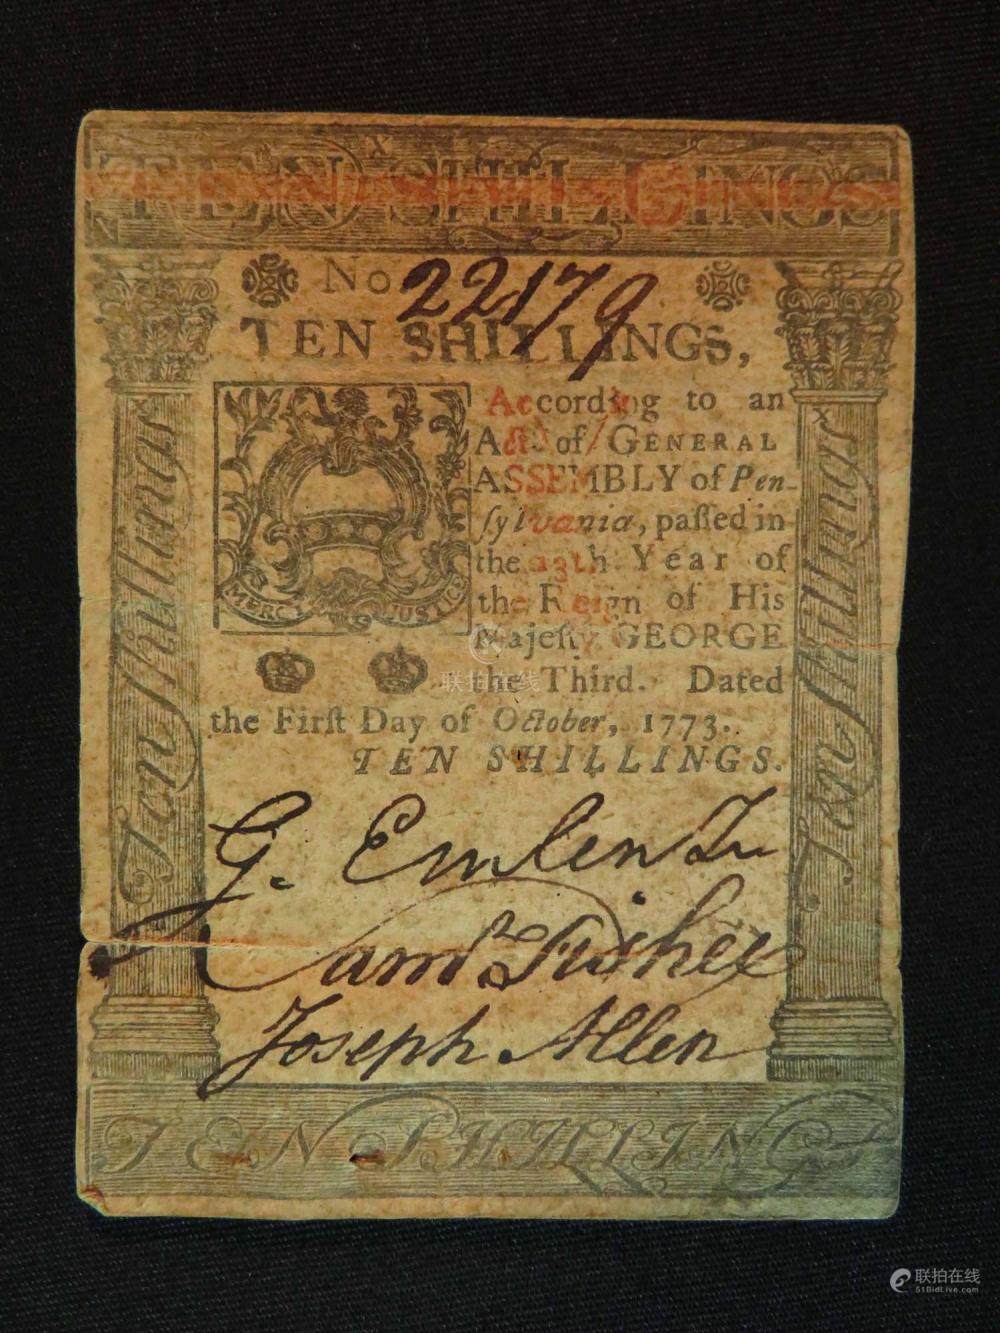 TEN SHILLINGS
No 22179
TEN SHILLINGS,
According to an
Act of GENERAL
ASSEMBLY of Pen-
ſylvania, paſſed in
the 13th Year of
the Reign of His
Majeſty GEORGE
the Third. Dated
the Firſt Day of October, 1773.
TEN SHILLINGS.
MERCY JUSTICE
Ten Shillings
Ten Shillings
G. Emlen Ju
Sam^l Fisher
Joseph Allen
TEN SHILLINGS
联拍在线
联拍在线
51BidLive.com